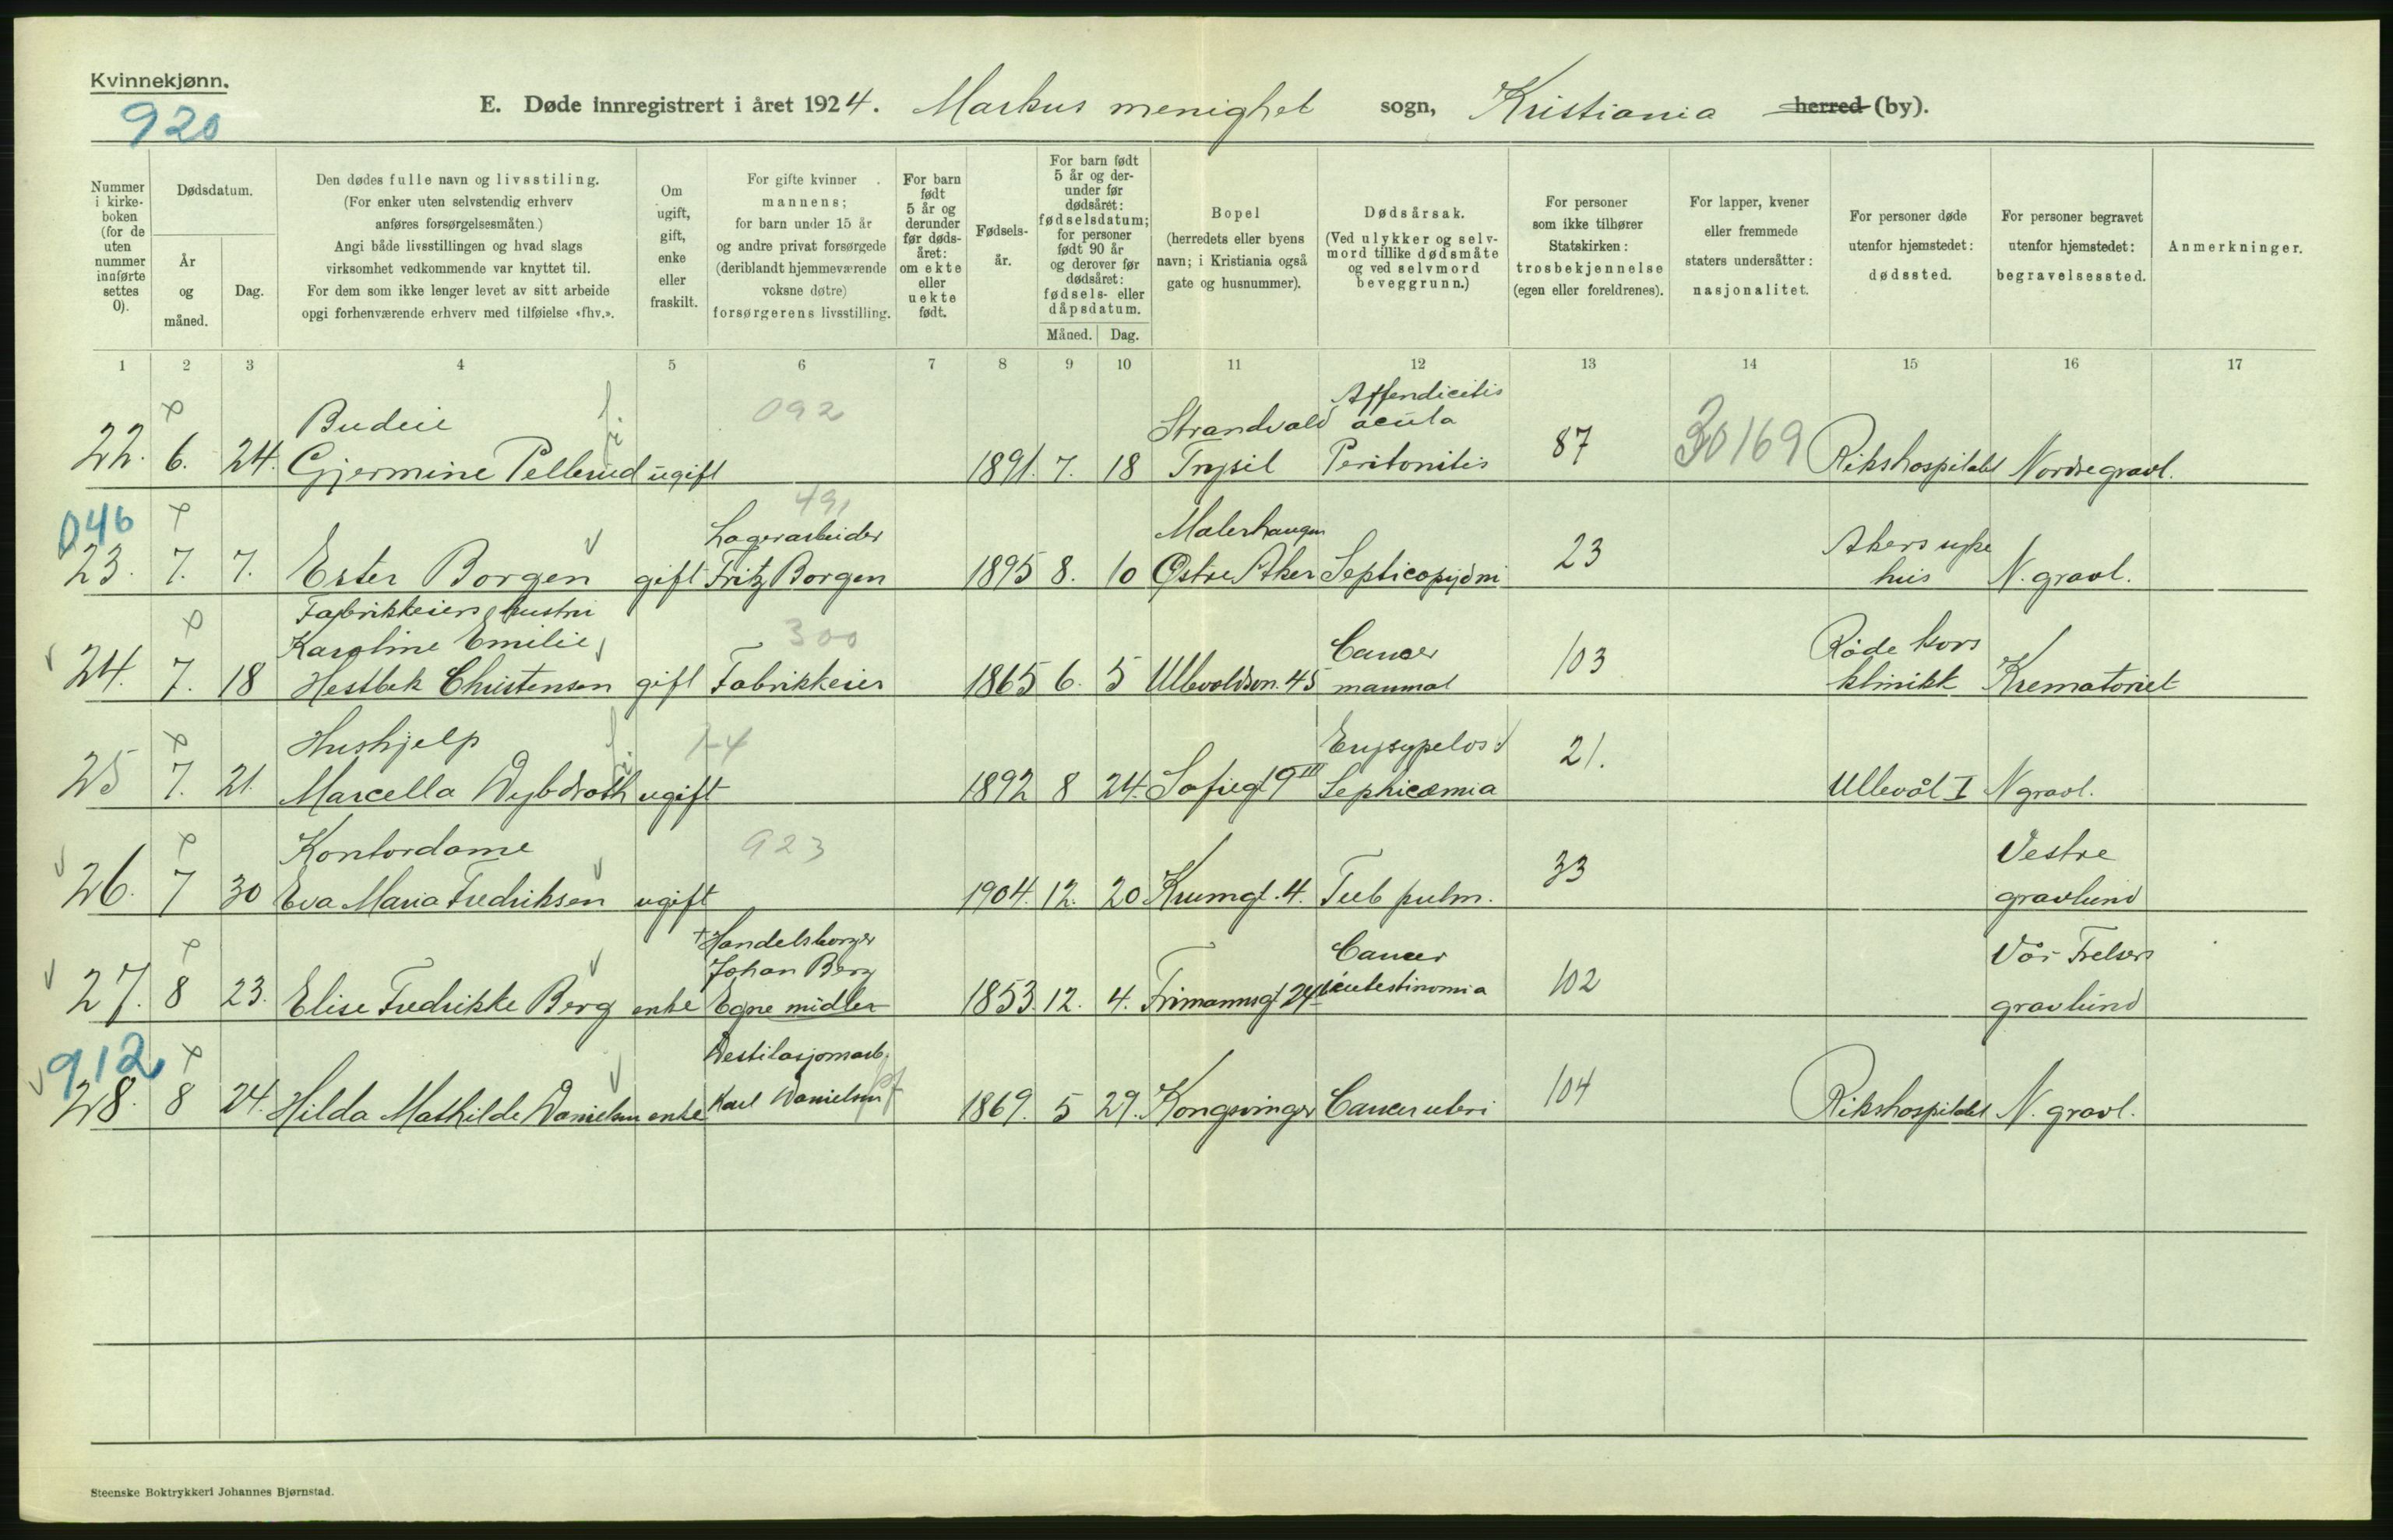 Kvinnekjønn.
920
E. Døde innregistrert i året 1924. Markus menighet sogn, Kristiania herred (by).
Nummer i kirkeboken (for de uten nummer innførte settes 0).
Dødsdatum.
År og måned.
Dag.
Den dødes fulle navn og livsstiling.
(For enker uten selvstendig erhverv
anføres forsørgelsesmåten.)
Angi både livsstillingen og hvad slags
virksomhet vedkommende var knyttet til.
For dem som ikke lenger levet av sitt arbeide
opgi forhenværende erhverv med tilføielse «fhv.».
Om ugift, gift, enke eller fraskilt.
For gifte kvinner
mannens;
for barn under 15 år
og andre privat forsørgede
(deriblandt hjemmeværende
voksne døtre)
forsørgerens livsstilling.
For barn født 5 år og derunder før dødsåret: om ekte eller uekte født.
Fødselsår.
For barn født 5 år og derunder før dødsåret: fødselsdatum; for personer født 90 år og derover før dødsåret: fødsels- eller dåpsdatum.
Måned. Dag.
Bopel
(herredets eller byens
navn; i Kristiania også
gate og husnummer).
Dødsårsak.
(Ved ulykker og selvmord tillike dødsmåte og ved selvmord beveggrunn.)
For personer
som ikke tilhører
Statskirken:
trosbekjennelse
(egen eller foreldrenes).
For lapper, kvener
eller fremmede
staters undersåtter:
nasjonalitet.
For personer døde
utenfor hjemstedet:
dødssted.
For personer begravet
utenfor hjemstedet:
begravelsessted.
Anmerkninger.
1 2 3 4 5 6 7 8 9 10 11 12 13 14 15 16 17
Budeie 092 Strandvold Appendicitis acuta
22. 6. 24. Gjermine Pellerud ugift 1891. 7. 18 Trysil Peritonitis 87 30169 Rikshospitalet Nordre gravl.
046 491
Lagerarbeider Malerhaugen Akers syke
23. 7. 7. Ester Borgen gift Fritz Borgen 1895 8. 10 Østre Aker Septicopyämi 23 hus N. gravl.
Fabrikkeiers hustru
Karoline Emilie 300 Cancer Røde kors
24. 7. 18 Hestbek Christensen gift Fabrikkeier 1865 6. 5 Ullevoldsvn. 45 mammal 103 klinikk Krematoriet
Hushjelp Erysypelas
25 7. 21. Marcella Wybdroth ugift 1892 8 24. Sofiegt 9 III Sephicæmia 21. Ullevål I N gravl.
Kontordame 923 Vestre
26. 7 30 Eva Maria Fredriksen ugift 1904. 12. 20 Krumgt. 4. Tub pulm. 33 gravlund
Handelsborger
Johan Berg Cancer Vår Frelsers
27. 8 23. Elise Fredrikke Berg enke Egne midler 1853. 12. 4. Frimannsgt 24 102 gravlund
912 Destilasjonsarb.
28. 8 24. Hilda Mathilde Danielsen enke Karl Danielsen 1869. 5 29. Kongsvinger Cancer uteri 104 Rikshospitalet N. gravl.
Steenske Boktrykkeri Johannes Bjørnstad.